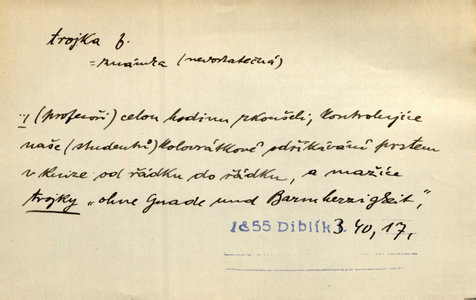 trojka f.
= známka (nedostatečná)
:/ (profesoři) celou hodinu zkoušeli, kontrolujíce
naše (studentů) kolovrátkové odříkávání prstem
v knize od řádku do řádku, a mažíce
trojky „ohne Gnade und Barmherzigkeit",
1855 Diblík 3 40, 17,